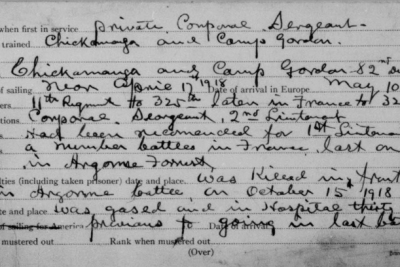 when first in service Private Corporal Sergeant.
trained Chickamauga and Camps Gordon.
Chickamauga and Camp Gordon 82nd
of sailing near Aprie 17th 1918 Date of arrival in Europe May 10
11th Regment to 325th later in France to 32
Corporal, Seargeant, 2nd Lieutenant
Had been recomended for 1st Lieutenant
a number battles in France, last on
in Argonne Forrest
(including taken prisoner) date and place was Killed in
in Argonne battle, on October 15, 1918
and place was gased and in Hospital
of sailing for America previous to going in last Date of arrival
mustered out Rank when mustered out
(Over)